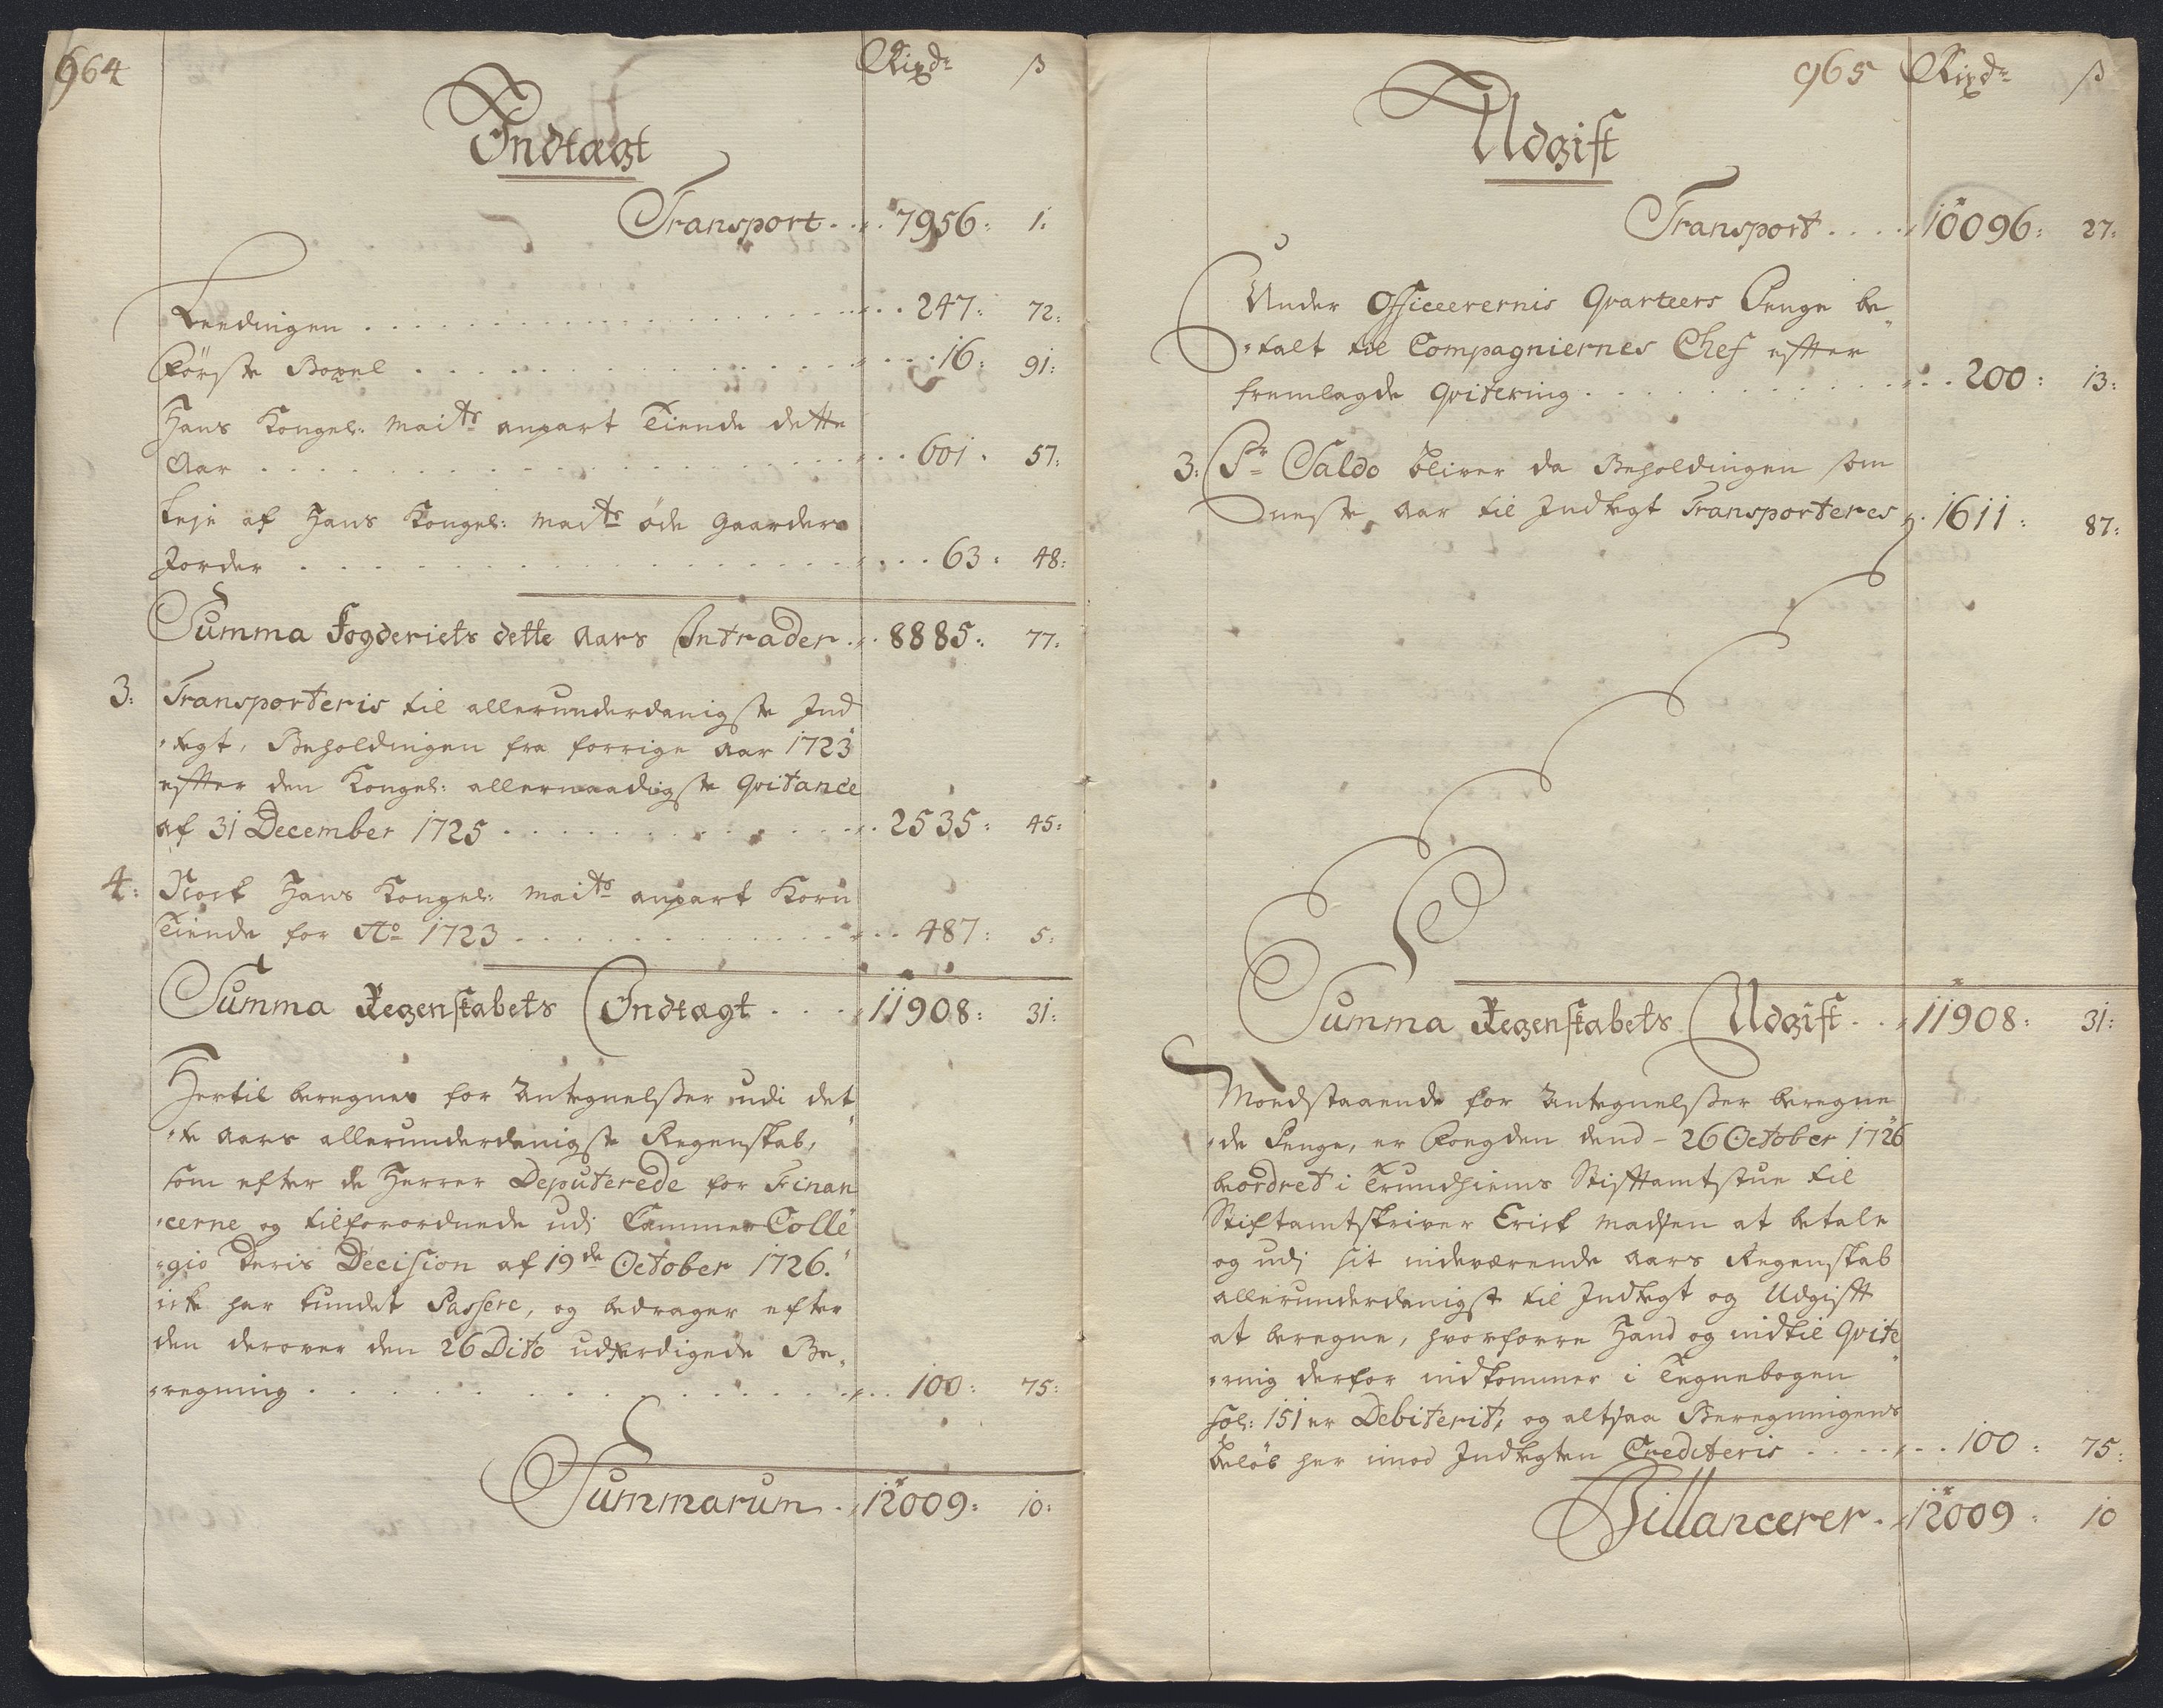 964
Rixdr ß
Indtægt
Transport 7956: 1:
Leedingen 247: 72:
Förste Boxel 16: 91:
Hans Kongel: Maits anpart Tiende dette
Aar 601. 57:
Leje af Hans Kongel: Maits öde Gaarders
Jorder 63: 48:
Summa Fogderiets dette Aars Intrader 8885: 77:
3: Transporteris til allerunderdanigste Ind
tegt, Beholdningen fra forrige Aar 1723
effter den Kongel: allernaadigste Qvitance
af 31 December 1725 2535: 45:
4: Hans Kongel: Maits anpart Korn
Tiende for Ao 1723 487: 5:
Summa Regenskabets Indtægt 11908: 31:
Hertil beregnes for Antegnelsser udi det
te Aars allerunderdanigste Regenskab,
som efter de Herrer Deputerede for Finan
cerne og tilforordnede udj Cammer Colle
gio Deris Decision af 19de October 1726.
icke har kundet Passere, og bedrager efter
den derover den 26 Dito udferdigede Be
regning 100: 75:
Summarum 12009: 10:
965
Rixdr ß
Udgift
Transport 10096: 27:
Under Officeerernis Qvarteers Penge be
talt til Compagniernes Chef effter
fremlagde Qvitering 200: 13:
3: Pr Saldo bliver da Beholdingen som
neste Aar til Indtegt Transporteres 1611: 87:
Summa Regenskabets Udgift 11908: 31:
Moedstaaende for Antegnelsser beregne
de Penge, er Foegden dend 26 October 1726
beordret i Trundhiems Stifftamtstue til
Stiftamtskriver Erick Madsen at betale
og udj sit nideværende Aars Regenskab
allerunderdanigst til Indtegt og Udgifft
at beregne, hvorforre Hand og indtil Qvite
ring derfor indkommer i Tegnebogen
fol: 151 er Debiterit, og altsaa Beregningens
Beløb her imod Indtegten Crediteris 100: 75:
Billancerer 12009: 10